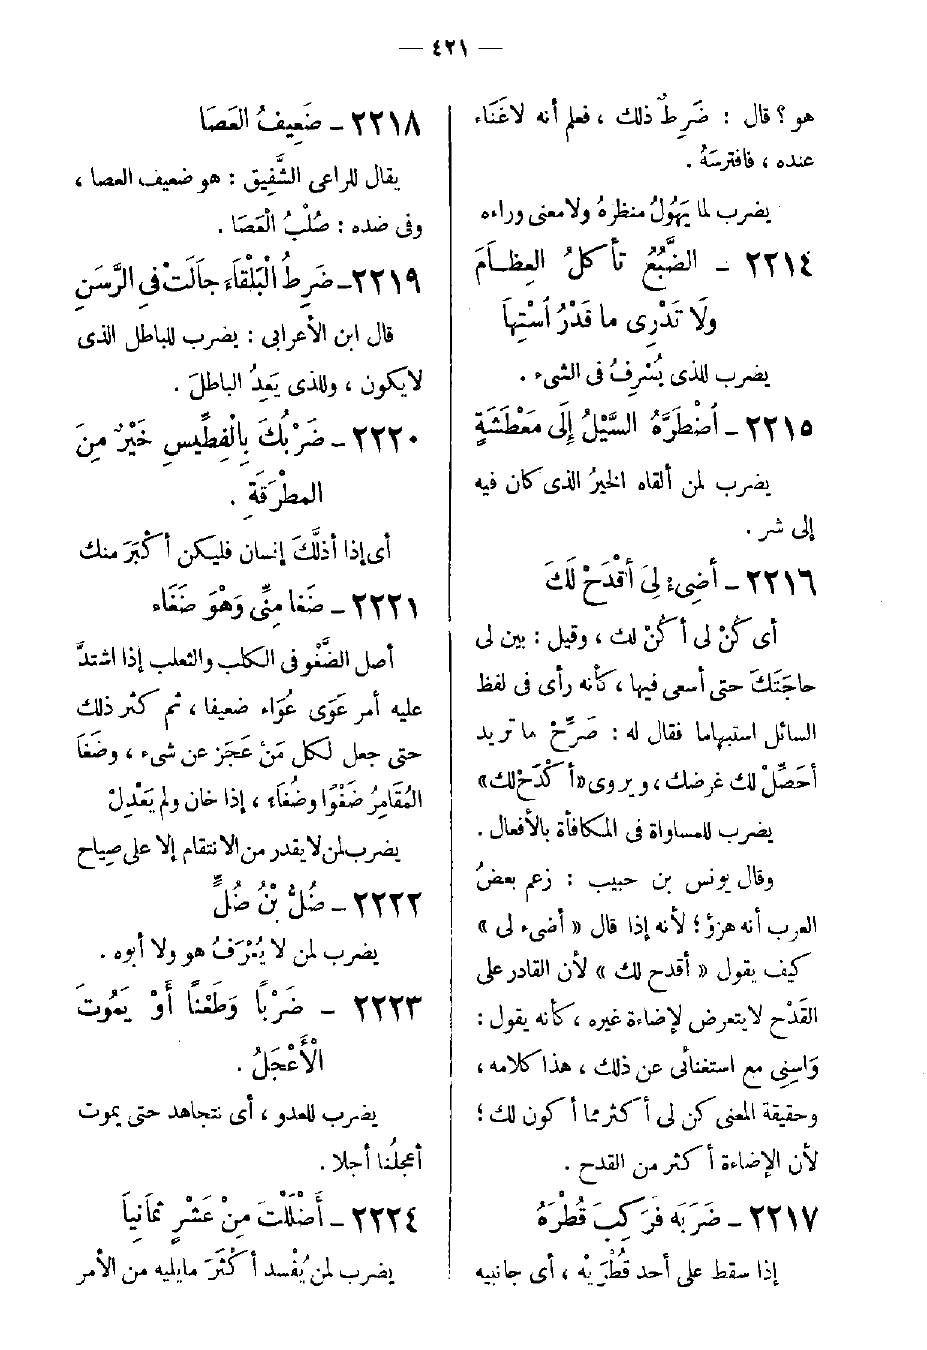 — ٤٢١ —
هو ؟ قال : ضَرِطٌ ذلك ، فعلم أنه لاغَنَاء
عنده ، فافترسَهُ .
يضرب لما يَهُولُ منظرهُ ولامعنى وراءه
٢٢١٤ – الضَّبُعُ تأكلُ العِظَامَ
ولَا تَدْرِى ما قَدْرُ اسْتِهاَ
يضرب للذى يُسْرِفُ فى الشىء .
٢٢١٥ – اُضْطَرَّهُ السَّيْلُ إلَى مَعْطَشَةٍ
يضرب لمن ألقاه الخيرُ الذى كان فيه
إلى شر .
٢٢١٦ – أضِىءْ لِىَ أقْدَحْ لَكَ
أى كُنْ لى أكُنْ لك ، وقيل : بين لى
حاجَتَكَ حتى أسعى فيها ، كأنه رأى فى لفظ
السائل استبهاما فقال له : صَرِّحْ ما تريد
أحَصِّلْ لك غرضك ، ويروى «أكْدَحْ لك»
يضرب للمساواة فى المكافأة بالأفعال .
وقال يونس بن حبيب : زعم بعضُ
العرب أنه هزؤ ؛ لأنه إذا قال « أضىء لى »
كيف يقول « أقدح لك » لأن القادر على
القَدْح لايتعرض لإضاءة غيره ، كأنه يقول :
وَاسِنِى مع استغنائى عن ذلك ، هذا كلامه ،
وحقيقة المعنى كن لى أكثر مما أكون لك ؛
لأن الإضاءة أكثر من القدح .
٢٢١٧ – ضَرَبَه فَرَكِبَ قُطْرَهُ
إذا سقط على أحد قُطْرَيْه ، أى جانبيه
٢٢١٨ – ضَعِيفُ العَصَا
يقال للراعى الشَّفِيق : هو ضعيف العصا ،
وفى ضده : صُلْبُ الْعَصَا .
٢٢١٩ – ضَرِطُ الْبَلْقَاءِ جاَلَتْ فى الرَّسَنِ
قال ابن الأعرابى : يضرب للباطل الذى
لايكون ، وللذى يَعِدُ الباطلَ .
٢٢٢٠ – ضَرْبُكَ بِالْفِطِّيسِ خَيْرٌ مِنَ
المِطْرَقَةِ .
أى إذا أذلَّكَ إنسان فليكن أكْبَرَ منك
٢٢٢١ – ضَغا مِنِّى وَهْوَ ضَغَّاء
أصل الضَّغْو فى الكلب والثعلب إذا اشتدَّ
عليه أمر عَوَى عُوَاء ضعيفا ، ثم كثر ذلك
حتى جعل لكل مَنْ عَجَز عن شىء ، وضَغَا
المُقَامِرُ ضَغْوًا وضُغَاء ، إذا خان ولم يَعْدِلْ
يضرب لمن لايقدر من الانتقام إلا على صِياح
٢٢٢٢ – ضُلُّ بْنُ ضُلٍّ
يضرب لمن لا يُعْرَفُ هو ولا أبوه .
٢٢٢٣ – ضَرْبًا وَطَعْنًا أَوْ يَمُوتَ
الْأَعْجَلُ .
يضرب للعدو ، أى نتجاهد حتى يموت
أعجلُنا أجلا .
٢٢٢٤ – أَضْلَلْتَ مِنْ عَشْرٍ ثمَانِياً
يضرب لمن يُفْسد أكْثَرَ مايليه من الأمر